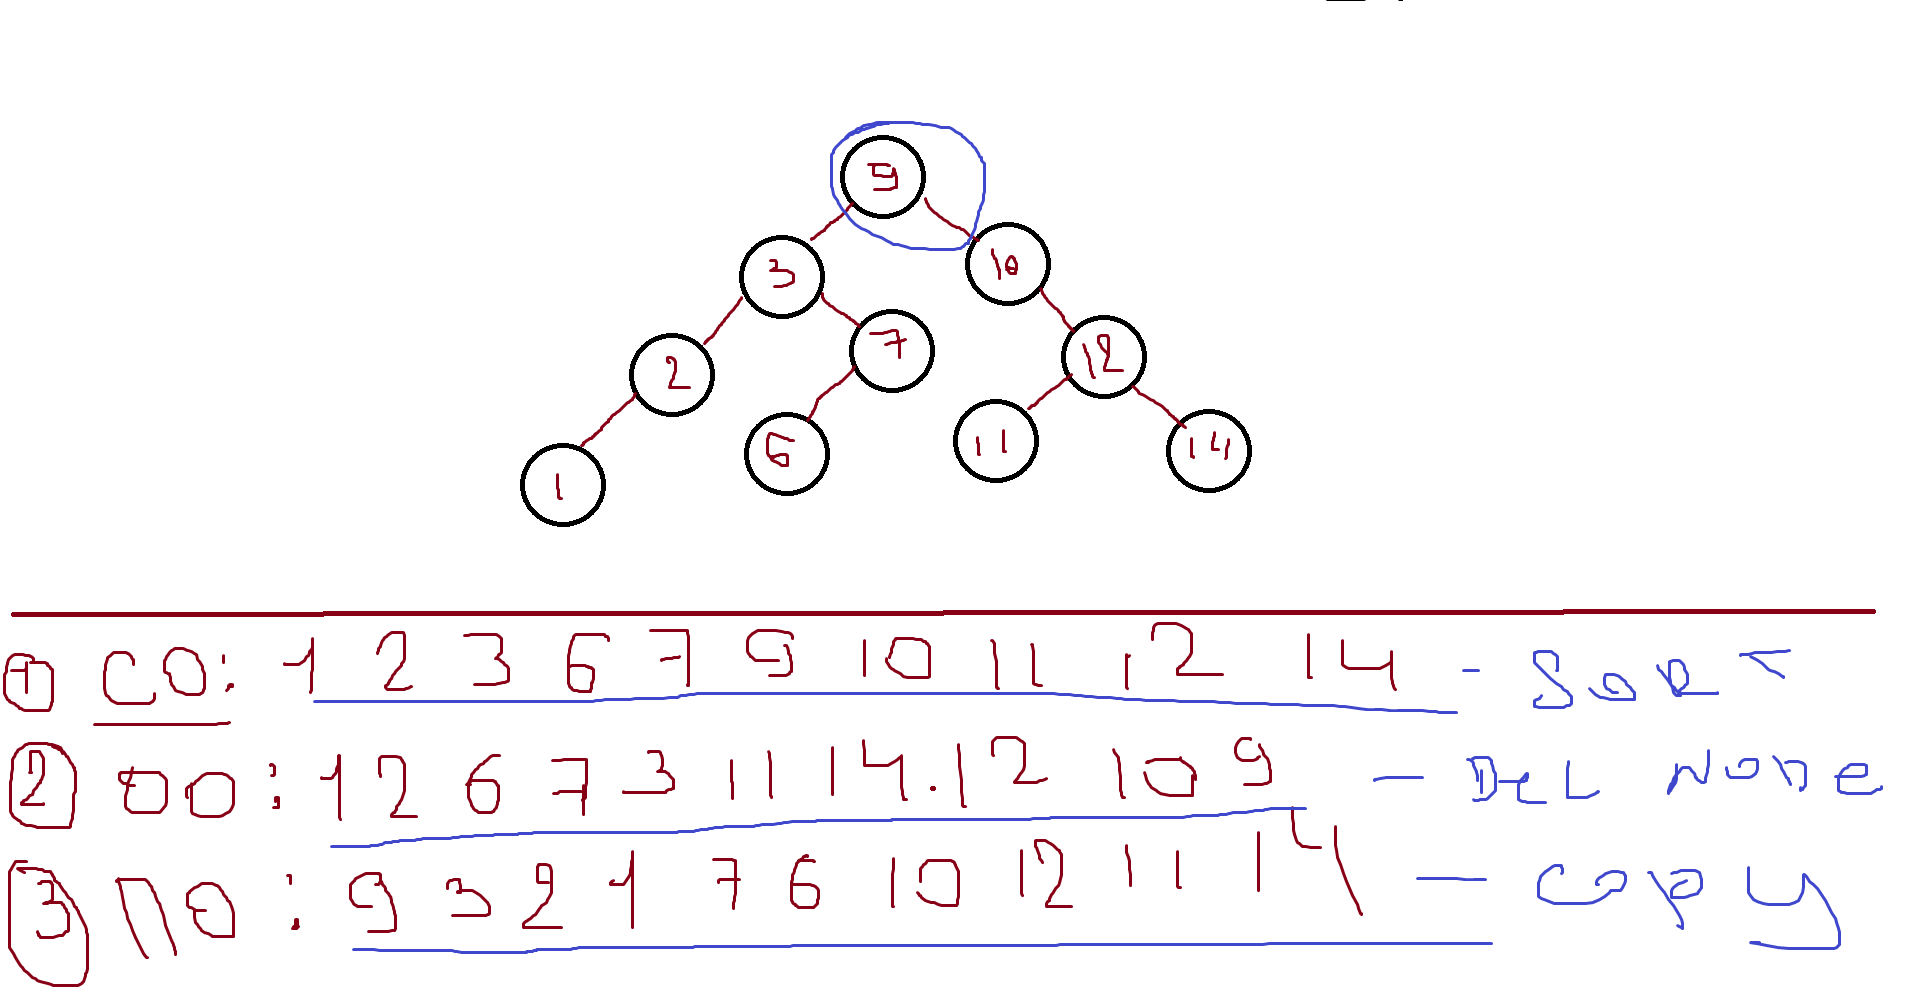 9
3 10
2 7 12
1 6 11 14
1 СО: 1 2 3 6 7 9 10 11 12 14 - SORT
2 ОО: 1 2 6 7 3 11 14 . 12 10 9 - DEL NODE
3 ПО: 9 3 2 1 7 6 10 12 11 14 - COPY